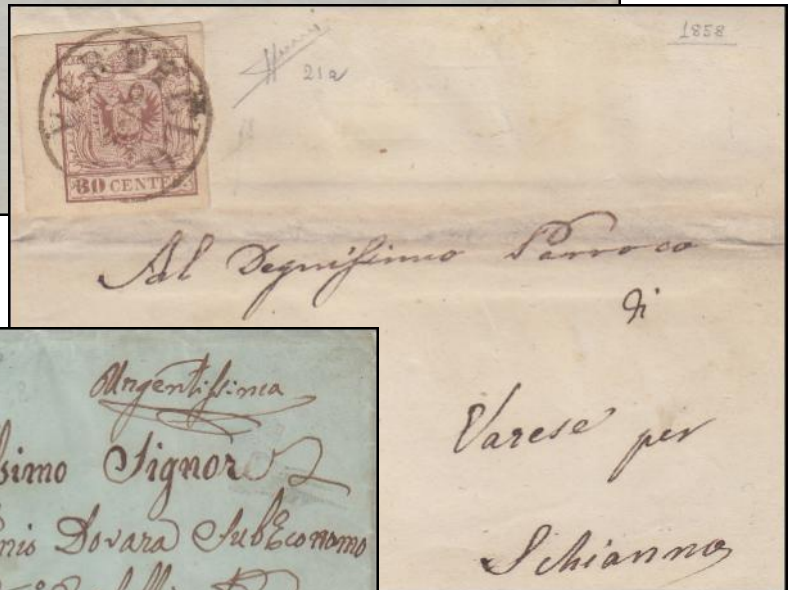 1858
21a
30 CENTES.
Al Degnissimo Parroco
di
Varese per
Schianno
Urgentissima
ssimo Signor
nio Dovara SubEconomo